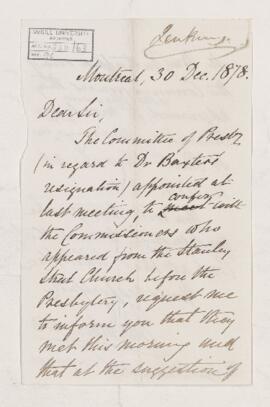 McGILL UNIVERSITY
ARCHIVES
Jenkins
Montreal, 30 Dec. 1878.
Dear Sir,
The Committee of Presby
(in regard to Dr Baxter's
resignation) appointed at
last meeting, to confer with
the Commissioners who
appeared from the Stanley
Street Church before the
Presbytery, request me
to inform you that they
met this morning and
that at the suggestion of